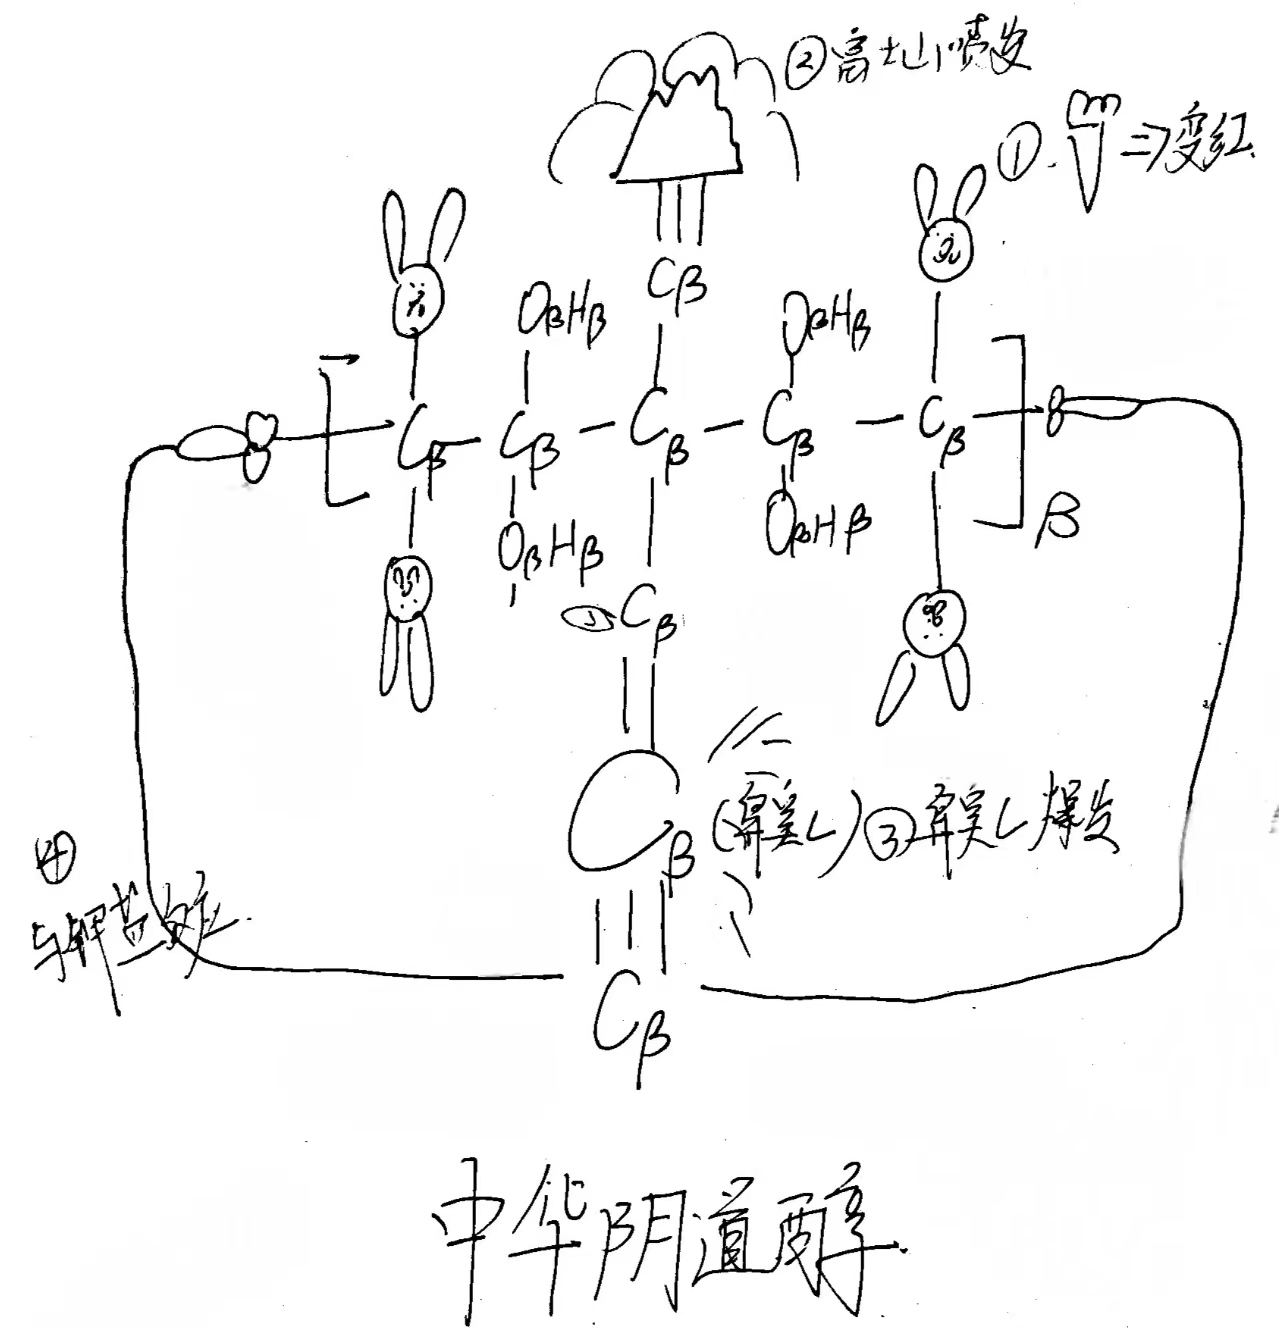 ②富士山喷发
①. ⇒变红
Cβ
OβHβ
OβHβ
Cβ — Cβ — Cβ — Cβ — Cβ
β
OβHβ
OβHβ
Cβ
Cβ
③ 爆发
④
与钾盐反应
Cβ
中华阴道醇